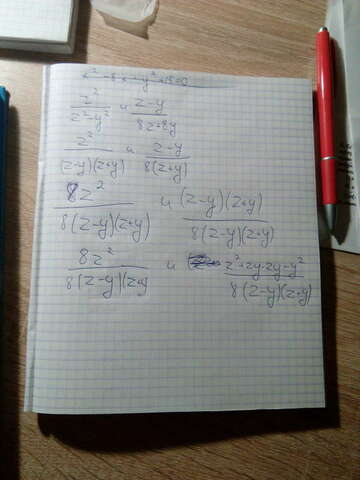 z²/(z²-y²) и (z-y)/(8z+8y)
z²/((z-y)(z+y)) и (z-y)/(8(z+y))
8z²/(8(z-y)(z+y)) и (z-y)(z+y)/(8(z-y)(z+y))
8z²/(8(z-y)(z+y) и (z²+zy-zy-y²)/(8(z-y)(z+y))